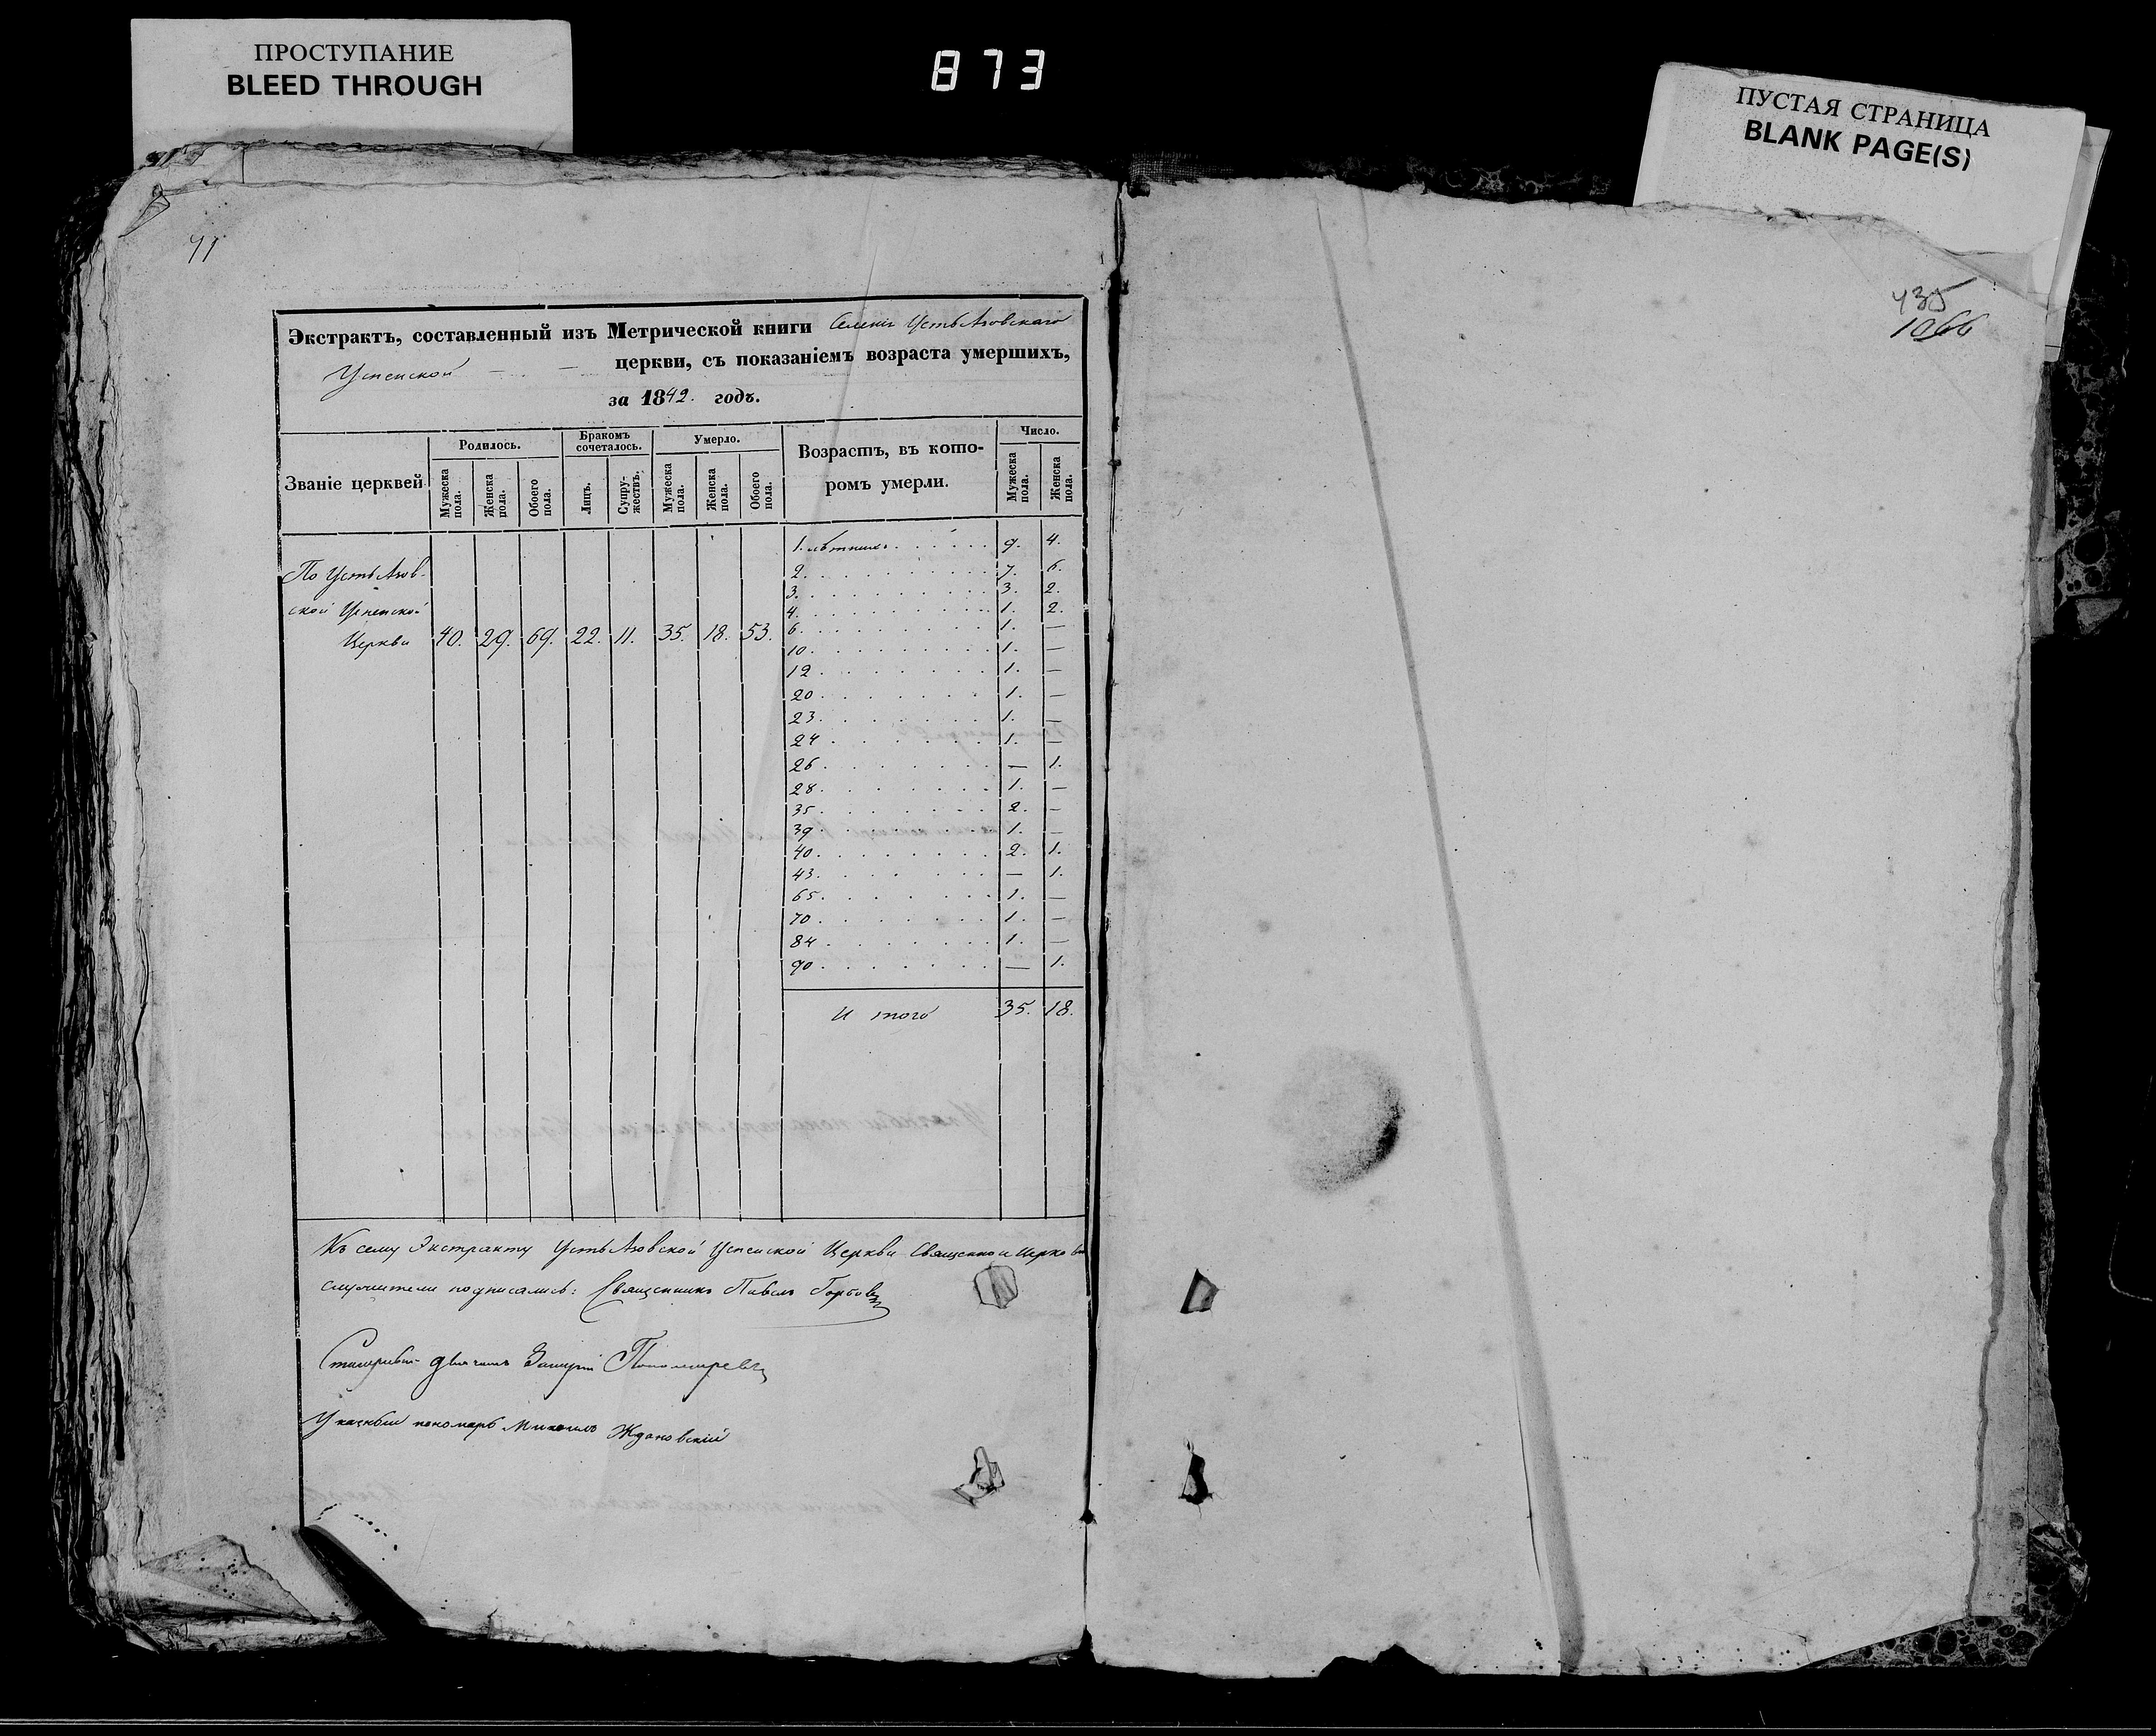 ПРОСТУПАНИЕ
BLEED THROUGH
873
ПУСТАЯ СТРАНИЦА
BLANK PAGE(S)
435
1066
Экстрактъ, составленный изъ Метрической книги Селенія Усть Азовскаго
Успенской церкви, съ показаніемъ возраста умершихъ,
за 1842. годъ.
Званіе церквей
Родилось.
Мужеска пола.
Женска пола.
Обоего пола.
Бракомъ сочеталось.
Лицъ.
Супружествъ.
Умерло.
Мужеска пола.
Женска пола.
Обоего пола.
Возрастъ, въ которомъ умерли.
Число.
Мужеска пола.
Женска пола.
По Усть Азов-
ской Успенской
Церкви 40. 29. 69. 22. 11. 35. 18. 53.
1. лѣтнихъ . . . . . 9. 4.
2. . . . . . . . . . 7. 6.
3. . . . . . . . . . 3. 2.
4. . . . . . . . . . 1. 2.
6. . . . . . . . . . 1. —
10. . . . . . . . . 1. —
12. . . . . . . . . 1. —
20. . . . . . . . 1. —
23. . . . . . . . 1. —
24. . . . . . . . 1. —
26. . . . . . . . — 1.
28. . . . . . . . 1. —
35. . . . . . . . 2. —
39. . . . . . . . 1. —
40. . . . . . . . 2. 1.
43. . . . . . . . — 1.
65. . . . . . . . 1. —
70. . . . . . . . 1. —
84. . . . . . . . 1. —
90. . . . . . . . — 1.
И того 35. 18.
Къ сему Экстракту Усть Азовской Успенской Церкви Священно и Церковно
служители подписались: Священникъ Павелъ Горбовъ
Пономаревъ
Указный пономарь Михаилъ Ждановскій